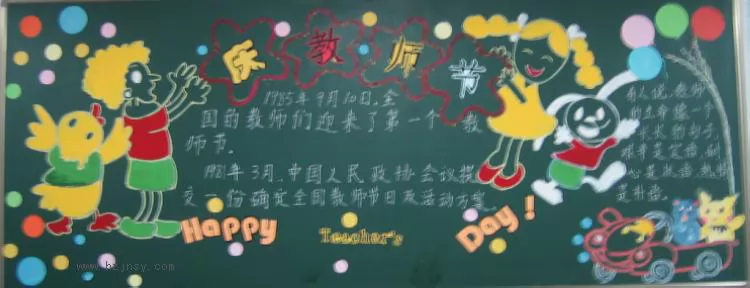 庆教师节
1985年9月10日,全
国的教师们迎来了第一个教
师节。
1981年3月,中国人民政协会议提
交一份确定全国教师节日及活动方案
有人说,教师
的生命像一个
长长的句子,
艰辛是定语,耐
心是状语,热情
是补语。
Happy Teacher's Day!
www.hzjnsy.com